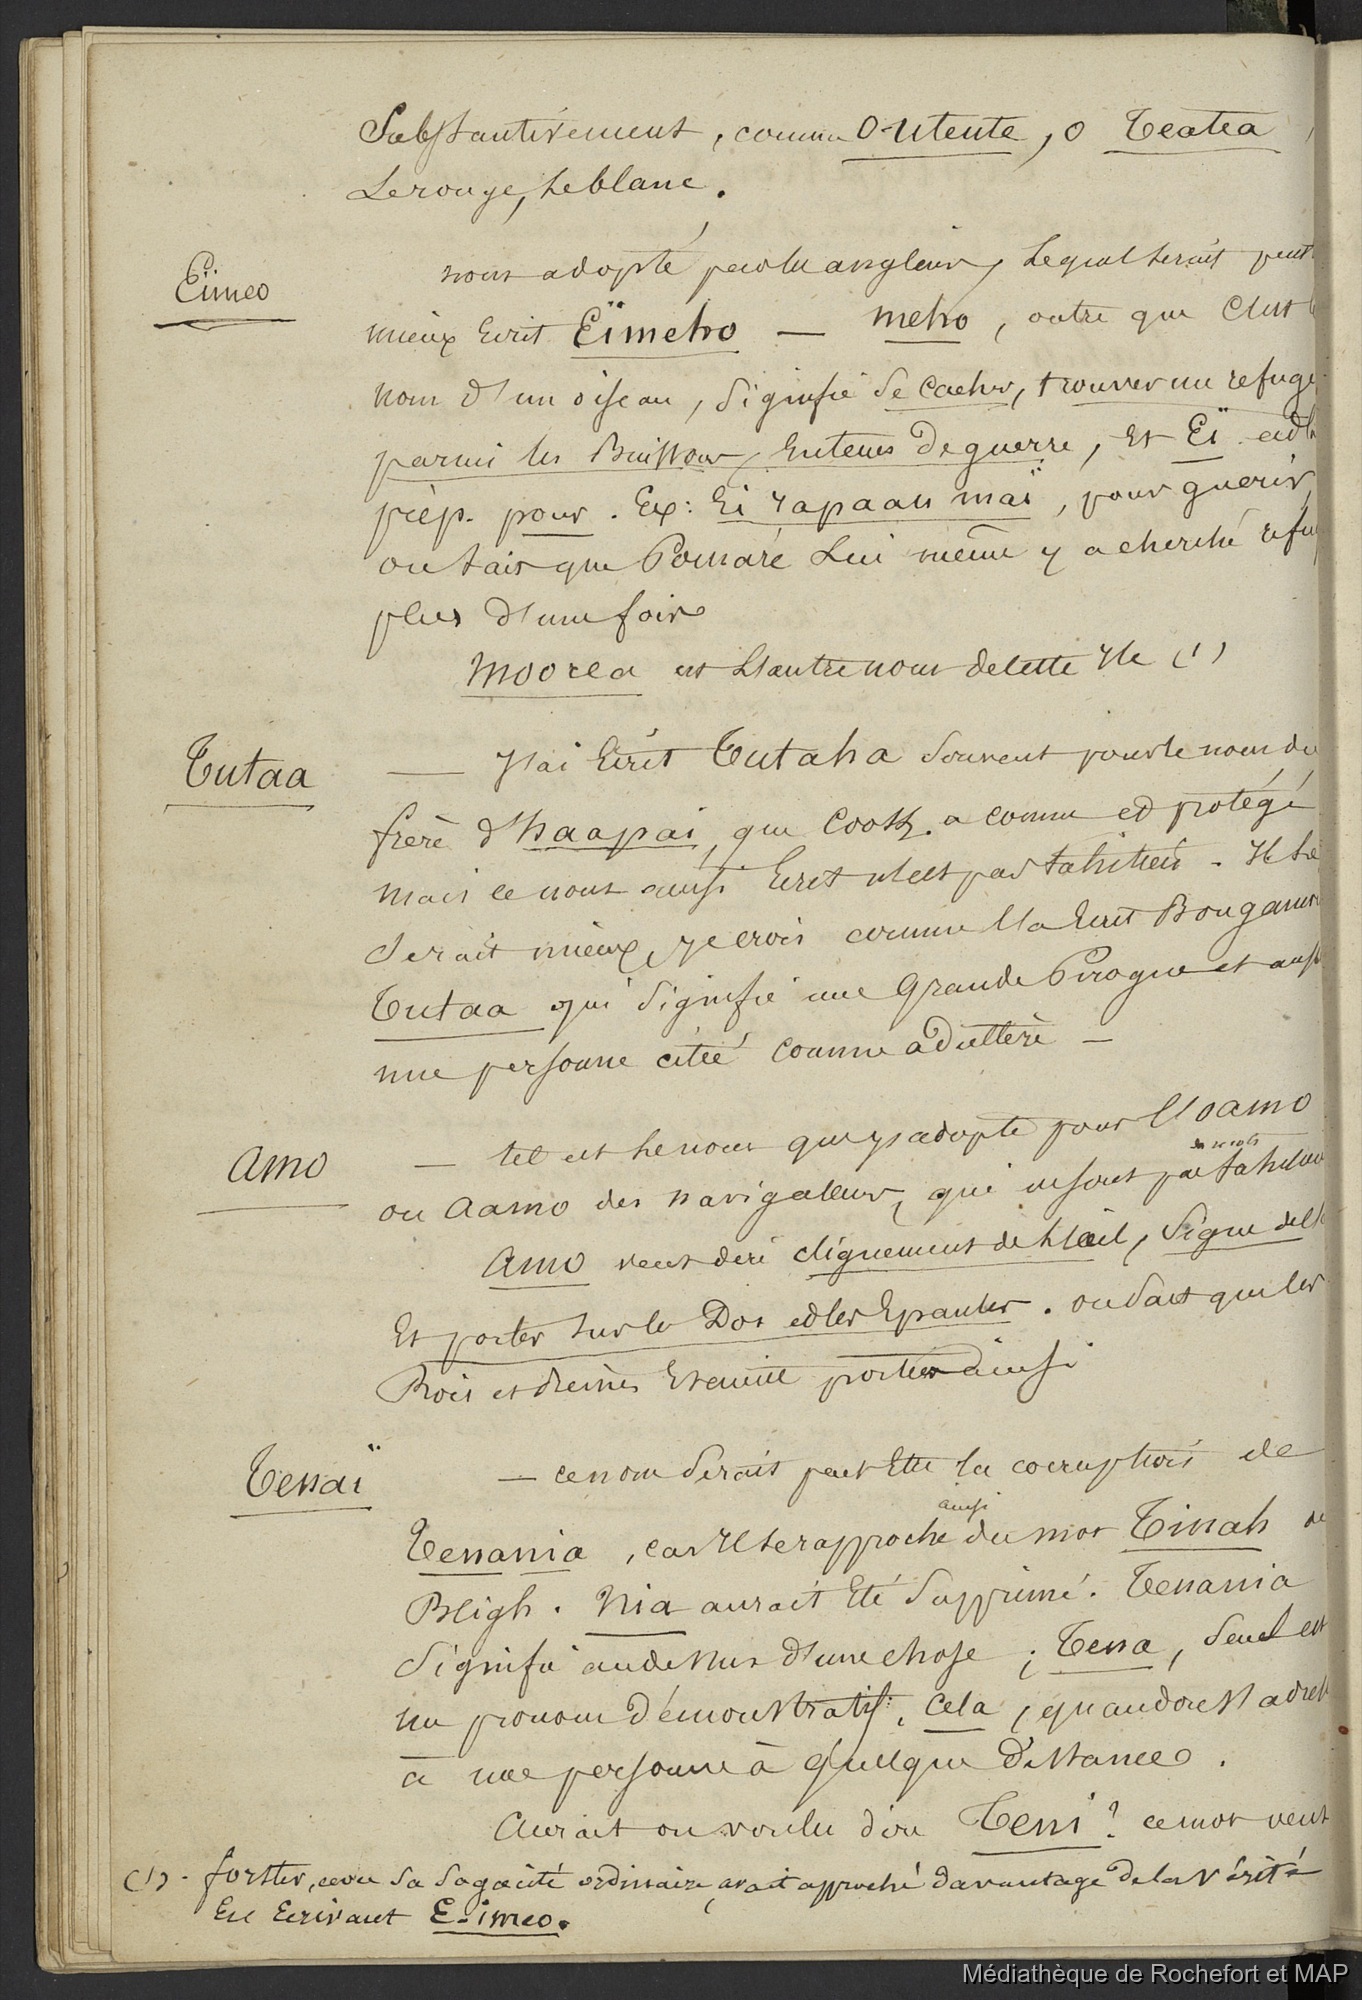 Substantivement, comme O-Utente, O Teatea,
Lerouge, Leblanc.
Eimeo
nom adopté par les anglais, Lequel serait peut
mieux Ecrit Eïmeho — meho, outre que C'est le
nom d'un oiseau, Signifie Se Cacher, trouver un refuge
parmi les Buissons, En tems De guerre, Et Eï est la
prép. pour. Ex: Ei rapaau maï, pour guerir,
on sait que Pomaré Lui même y a cherché refu
plus d'une fois
Moorea est L'autre nom de cette Ile (1)
Tutaa
— J'ai Ecrit Tutaha Souvent pour le nom du
frère d'haapai, que Cook a connu et protégé
Mais ce nom ainsi Ecrit n'est pas tahitien. Il Se
Serait mieux, je crois comme l'a Ecrit Bougainvi
Tutaa qui Signifie une Grande Pirogue et aussi
une personne citée comme adultère —
Amo
— tel est Le nom que j'adopte pour l'oamo
en mots
ou Aamo des navigateurs, qui ne sont pas tahitiens
Amo veut dire clignement de L'œil, Signe de l'
Et porter Sur le Dos et les Epaules. on Sait que les
Rois et Reines Etaient portés ainsi
Tenaï
— ce nom Serait peut Etre la corruption de
ainsi
Tenania, car Il se rapproche du mot Tinah de
Bligh. Nia aurait Eté Supprimé. Tenania
Signifie au dessus d'une chose; Tena, Seul est
un pronom démonstratif: Cela, quand on s'adresse
à une personne à quelque Distance.
Aurait on voulu dire Teni? ce mot veut
(1). forster, avec Sa Sagacité ordinaire, avait approché davantage de la Vérité
En Ecrivant E-imeo.
Médiathèque de Rochefort et MAP